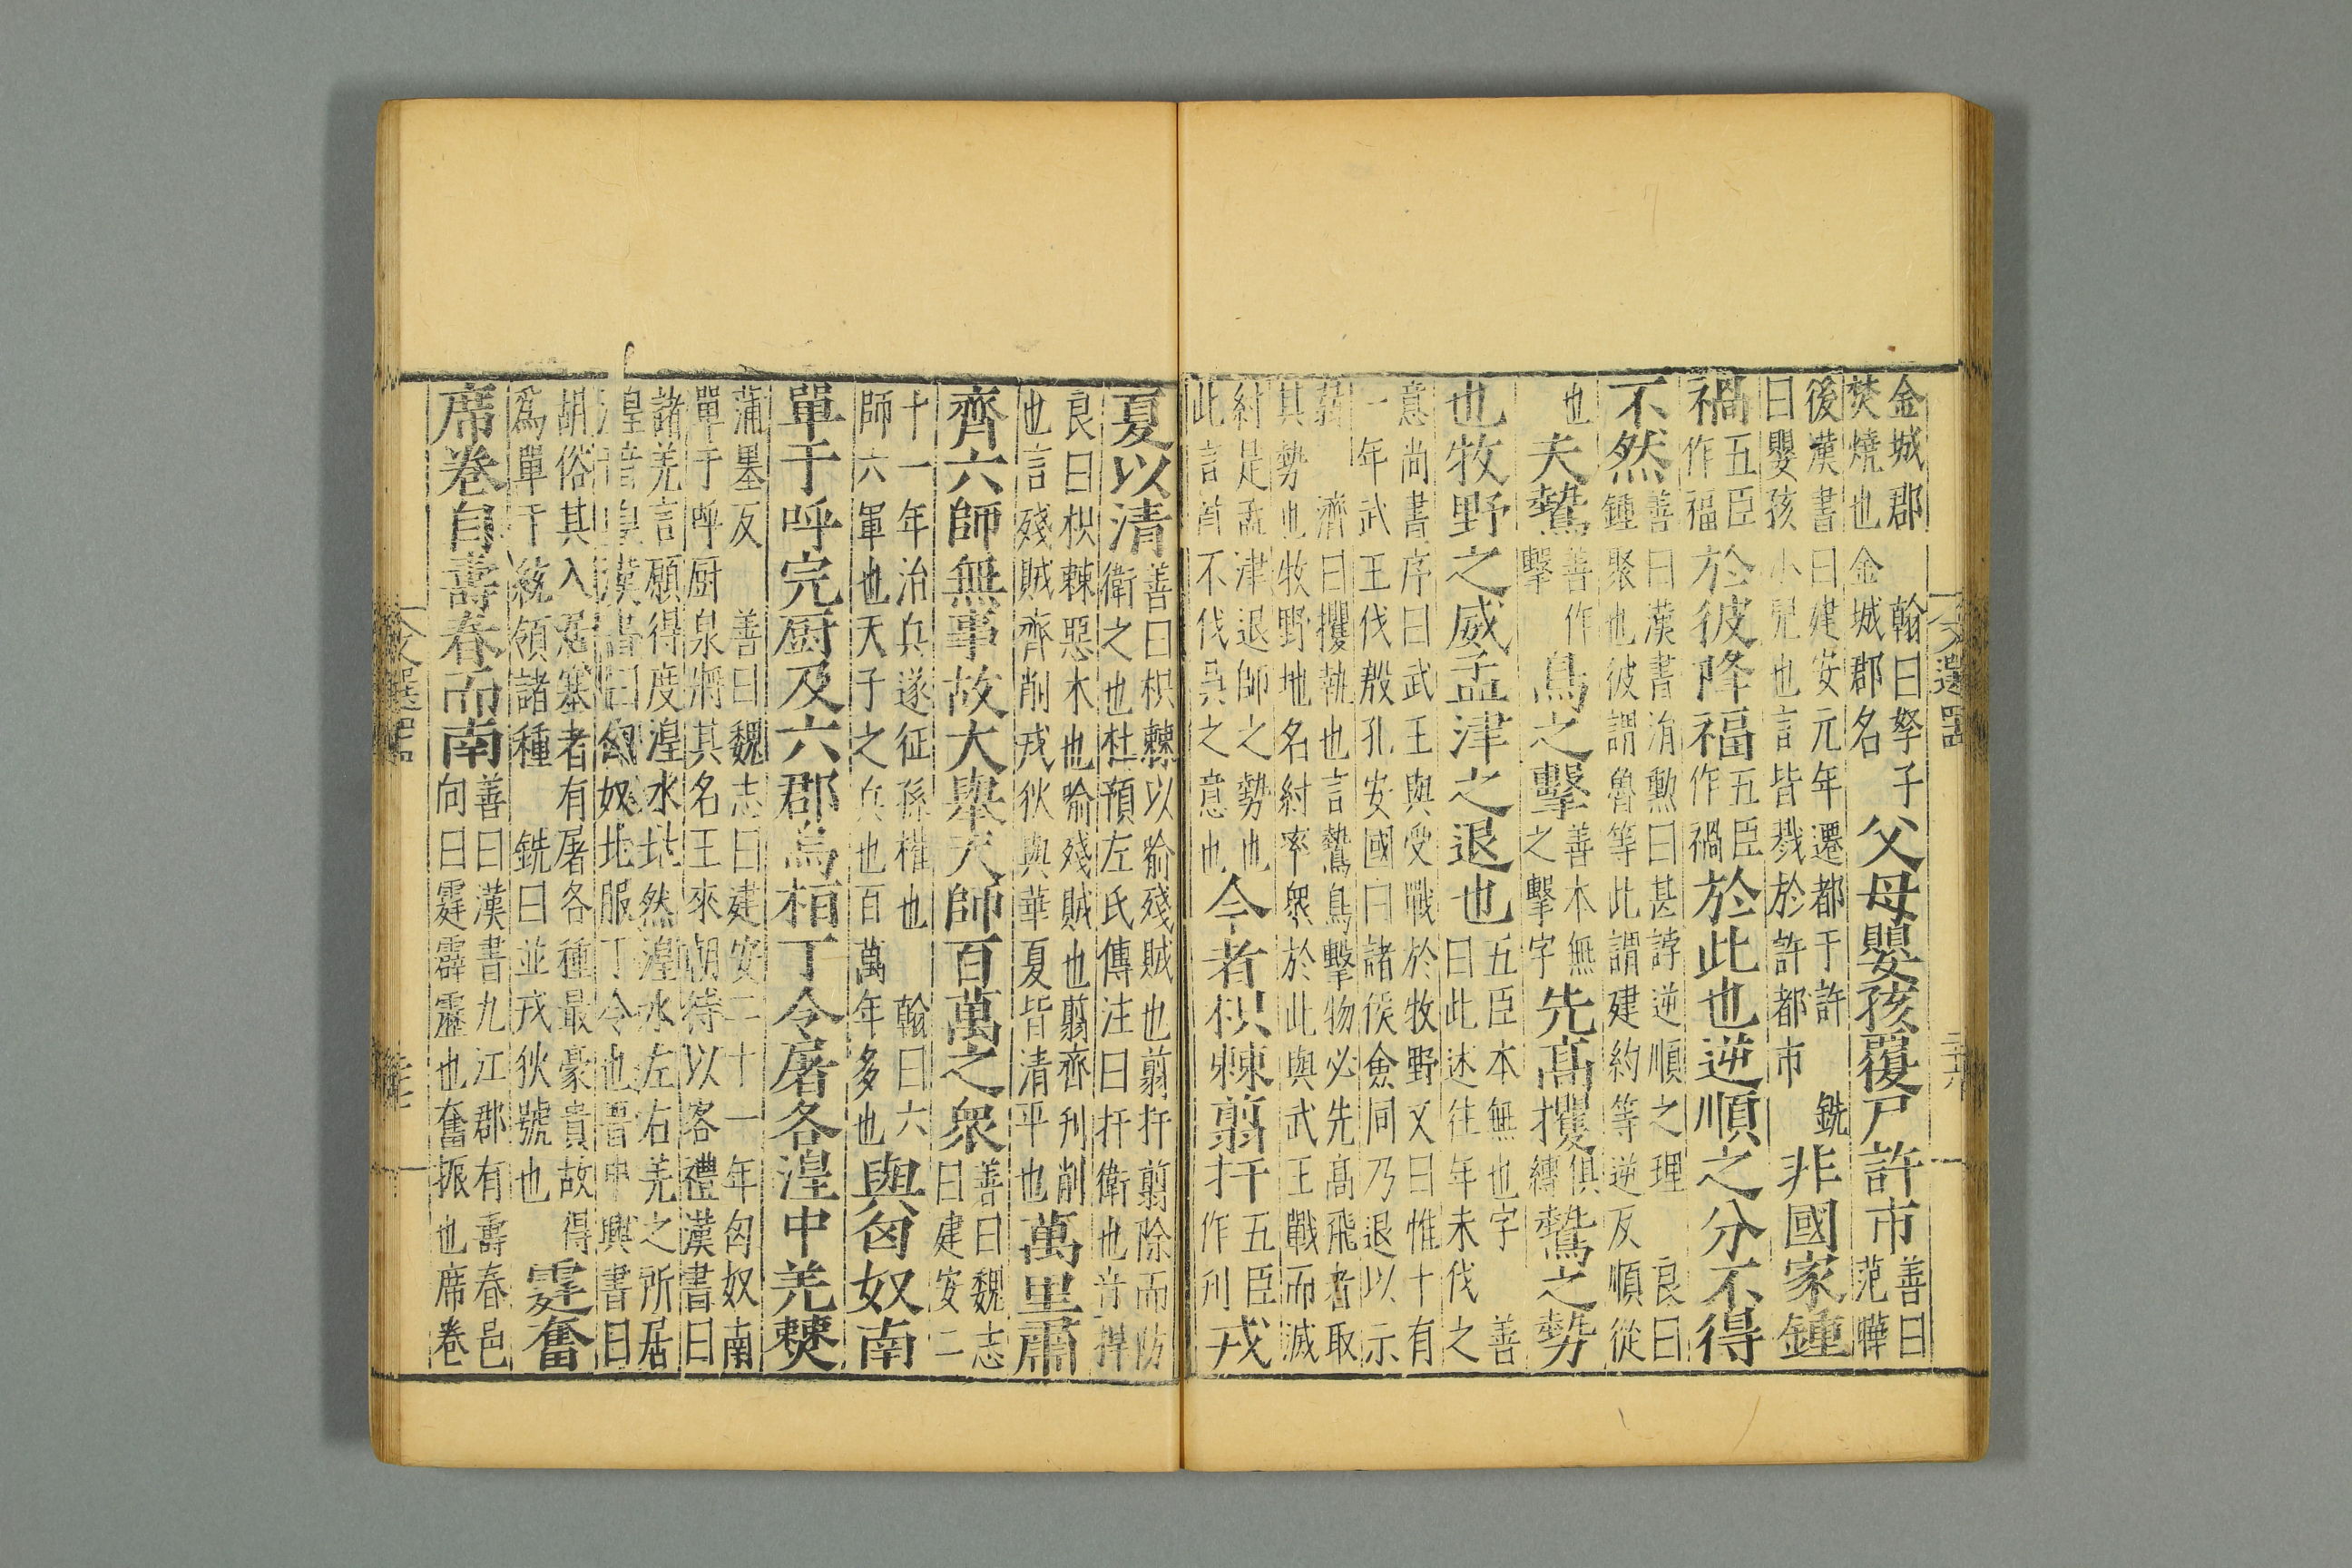 金城郡　翰曰孥子
焚燒也　金城郡名
父母嬰孩覆尸許市
善曰
范曄
後漢書曰建安元年遷都于許　銑
曰嬰孩小兒也言皆戮於許都市
非國家鍾
禍
五臣
作福
於彼降福
五臣
作禍
於此也逆順之分不得
不然
善曰漢書洧勲曰甚誖逆順之理　良曰
鍾聚也彼謂魯等此謂建約等逆反順從
也
夫鷙
善作
擊
鳥之擊
善木無
之擊字
先高攫
俱
縛
鷙之勢
也牧野之威孟津之退也
五臣本無也字　善
曰此述往年未伐之
意尚書序曰武王與受戰於牧野又曰惟十有
一年武王伐殷孔安國曰諸侯僉同乃退以示
弱　濟曰攫執也言鷙鳥擊物必先高飛者取
其勢也牧野地名紂率衆於此與武王戰而滅
紂是孟津退師之勢也
此言前不伐吳之意也
今者枳棘翦扞
五臣
作刋
戎
夏以清
善曰枳棘以喻殘賊也翦扞翦除而防
衛之也杜預左氏傳注曰扞衛也音捍
良曰枳棘惡木也喻殘賊也翦齊刋削
也言殘賊齊削戎狄與華夏皆清平也
萬里肅
齊六師無事故大舉天師百萬之衆
善曰魏志
曰建安二
十一年治兵遂征孫權也　翰曰六
師六軍也天子之兵也百萬年多也
與匈奴南
單于呼完厨及六郡烏桓丁令屠各湟中羌僰
蒲墨反　善曰魏志曰建安二十一年匈奴南
單于呼厨泉將其名王來朝待以客禮漢書曰
諸羌言願得度湟水北然湟水左右羌之所居
湟音皇漢書曰匈奴北服丁令也晉中興書曰
胡俗其入居塞者有屠各種最豪貴故得
為單于統領諸種　銑曰並戎狄號也
霆奮
席卷自壽春而南
善曰漢書九江郡有壽春邑
向曰霆霹靂也奮振也席卷